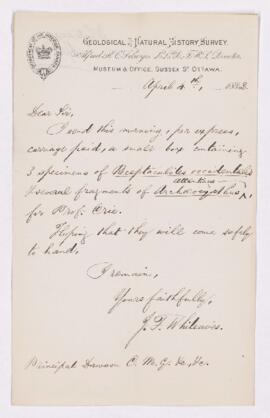 GEOLOGICAL & NATURAL HISTORY SURVEY.
Alfred R. C. Selwyn, LL.D., F.R.S., Director.
MUSEUM & OFFICE, SUSSEX ST OTTAWA.
April 4th, 1882
Dear Sir,
I sent this morning, per express,
carriage paid, a small box containing
3 specimens of Receptaculites occidentalis
& several fragments of Archaeocyathus,
for Prof.
Hoping that they will come safely
to hand,
I remain,
Yours faithfully,
J. F. Whiteaves.
Principal Dawson C. M. G. &c, &c.